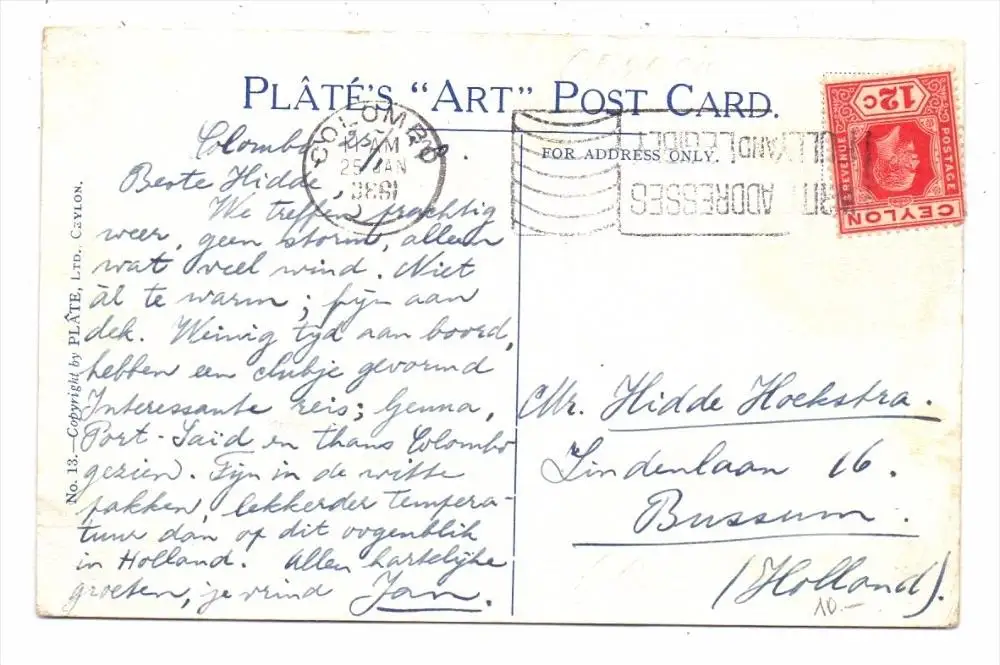 PLÂTÉ'S "ART" POST CARD.
FOR ADDRESS ONLY.
COLOMBO
AM
25 JAN
FULL AND LEGIBLE
ADDRESSES
12c
REVENUE
POSTAGE
CEYLON
No. 13.—Copyright by PLÂTE, LTD., CEYLON.
Colombo
Beste Hidde
We treffen prachtig
weer, geen storm, alleen
wat veel wind. Niet
ál te warm; fijn aan
dek. Weinig tyd aan boord,
hebben een clubje gevormd
Interessante reis; Genua,
Port-Saïd en thans Colombo
gezien. Fijn in de witte
pakken, lekkerder tempera-
tuur dan op dit oogenblik
in Holland. Allen hartelijke
groeten, je vriend Jan.
Mr. Hidde Hoekstra.
Lindenlaan 16.
Bussum.
(Holland).
10.-